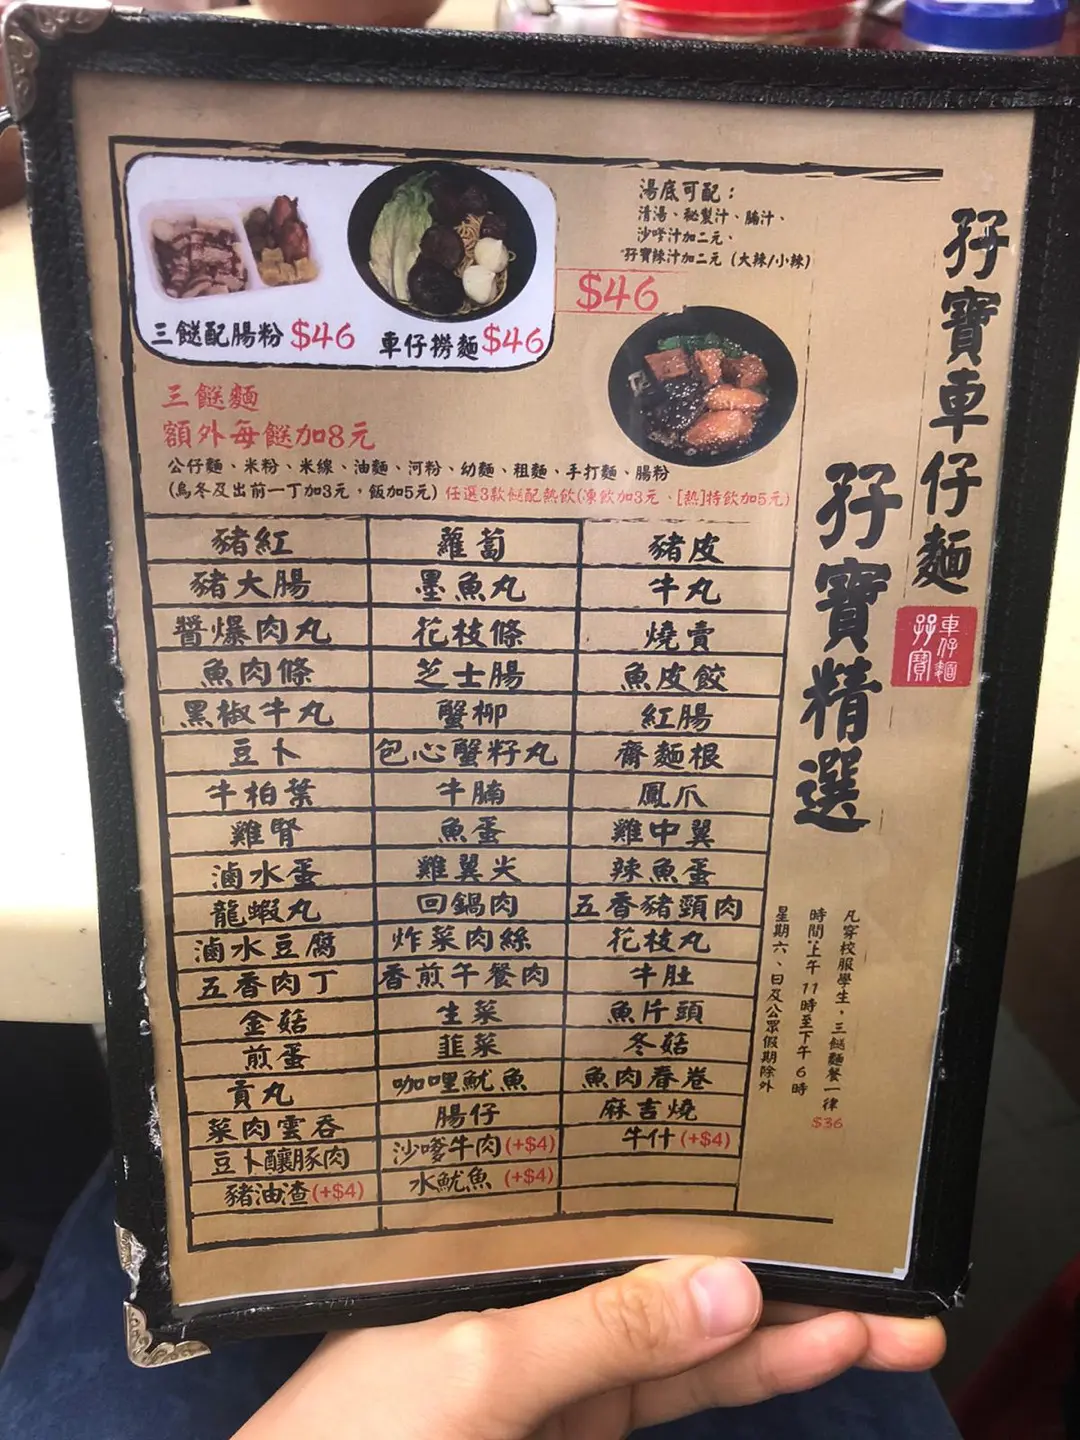 孖寶車仔麵
孖寶精選
車仔麵
孖寶
湯底可配：
清湯、秘製汁、腩汁、
沙嗲汁加二元、
孖寶辣汁加二元（大辣/小辣）
三餸配腸粉 $46
車仔撈麵 $46
$46
三餸麵
額外每餸加8元
公仔麵、米粉、米線、油麵、河粉、幼麵、粗麵、手打麵、腸粉
(烏冬及出前一丁加3元，飯加5元) 任選3款餸配熱飲(凍飲加3元、[熱]特飲加5元)
豬紅 蘿蔔 豬皮
豬大腸 墨魚丸 牛丸
醬爆肉丸 花枝條 燒賣
魚肉條 芝士腸 魚皮餃
黑椒牛丸 蟹柳 紅腸
豆卜 包心蟹籽丸 齋麵根
牛柏葉 牛腩 鳳爪
雞腎 魚蛋 雞中翼
滷水蛋 雞翼尖 辣魚蛋
龍蝦丸 回鍋肉 五香豬頸肉
滷水豆腐 炸菜肉絲 花枝丸
五香肉丁 香煎午餐肉 牛肚
金菇 生菜 魚片頭
煎蛋 韭菜 冬菇
貢丸 咖喱魷魚 魚肉春卷
菜肉雲吞 腸仔 麻吉燒
豆卜釀豚肉 沙嗲牛肉(+$4) 牛什(+$4)
豬油渣(+$4) 水魷魚(+$4)
凡穿校服學生，三餸麵餐一律$36
時間上午11時至下午6時
星期六、日及公眾假期除外